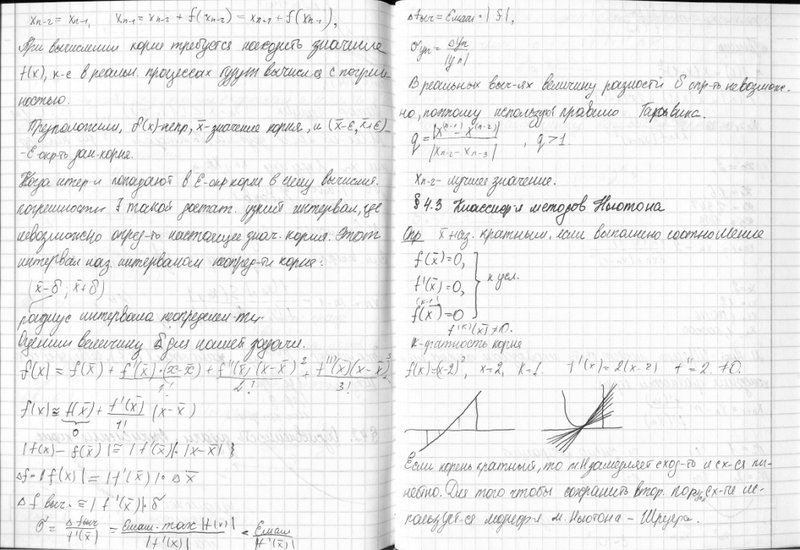 x_{n-2} = x_{n-1}, x_{n-1} = x_{n-2} + f(x_{n-2}) = x_{n-1} + f(x_{n-1}),
При вычислении корня требуется находить значение
f(x), к-е в реальн. процессах будут вычисл-ся с погреш-
ностью.
Предположим, f(x)-непр, x̄-значение корня, и (x̄-ε, x̄+ε)-
-ε окр-ть дан-корня.
Когда итер-и попадают в ε-окр корня в силу вычислит.
погрешности ∃ такой достат. узкий интервал, где
невозможно опред-ть настоящее знач. корня. Этот
интервал наз. интервалом неопред-ти корня:
(x̄-δ; x̄+δ)
радиус интервала неопределен-ти.
Оценим величину δ для нашей задачи.
f(x) = f(x̄) + f'(x̄)·(x-x̄)/1! + f''(x̄)(x-x̄)²/2! + f'''(x̄)(x-x̄)³/3!
f(x) ≅ f(x̄) + f'(x̄)/1! (x-x̄)
0
|f(x) - f(x̄)| ≅ |f'(x̄)|·|x-x̄|
Δf = |f(x)| = |f'(x̄)|·Δx̄
Δf выч. = |f'(x̄)|·δ
δ = Δf выч/f'(x̄) = Eмаш·max|f(x)|/|f'(x)| = Eмаш/|f'(x̄)|
Δf выч = Eмаш·|f|,
В реальных выч-ях величину разности δ опр-ть невозмож-
но, поэтому используют правило Гарвика.
q = |x^{(n-1)} - x^{(n-2)}|/|x_{n-2} - x_{n-3}|, q>1
x_{n-2} - лучшее значение.
§4.3 Классиф-я методов Ньютона
Опр x̄ наз. кратным, если выполнено соотношение
f(x̄)=0,
f'(x̄)=0, к усл.
f^{(k-1)}(x̄)=0
f^{(k)}(x̄)≠0.
к-кратность корня
f(x)=(x-2)², x=2, k=1. f'(x)=2(x-2) f''=2≠0.
Если корень кратный, то мН замедляет сход-ть и сх-ся ли-
нейно. Для того чтобы сохранить втор. пор-к сх-ти ис-
пользует-ся модиф-я м. Ньютона -